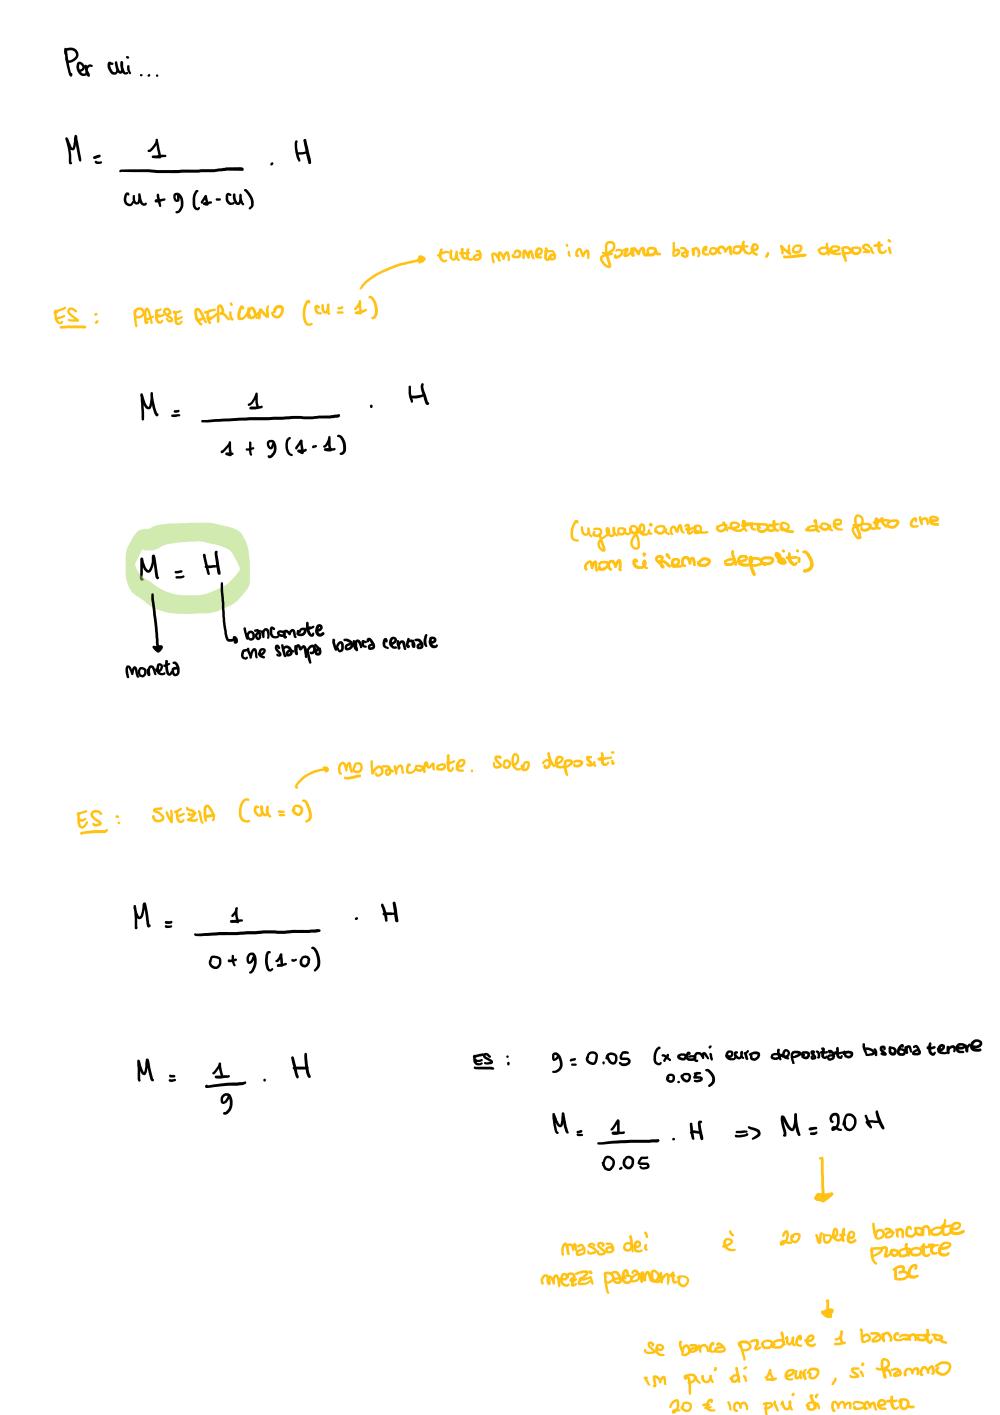 Per cui...
M = 1 / (cu + g (1 - cu)) . H
tutta moneta in forma banconote, NO depositi
ES : PAESE AFRICANO (cu = 1)
M = 1 / (1 + g (1 - 1)) . H
(uguaglianza dettata dal fatto che
non ci siano depositi)
M = H
banconote
che stampa banca centrale
moneta
no banconote. solo depositi
ES : SVEZIA (cu = 0)
M = 1 / (0 + g (1 - 0)) . H
M = 1 / g . H
ES : g = 0.05 (x ogni euro depositato bisogna tenere
0.05)
M = 1 / 0.05 . H => M = 20 H
massa dei è 20 volte banconote
mezzi pagamento prodotte
BC
se banca produce 1 banconota
in piu' di 1 euro, si hanno
20 € in piu' di moneta